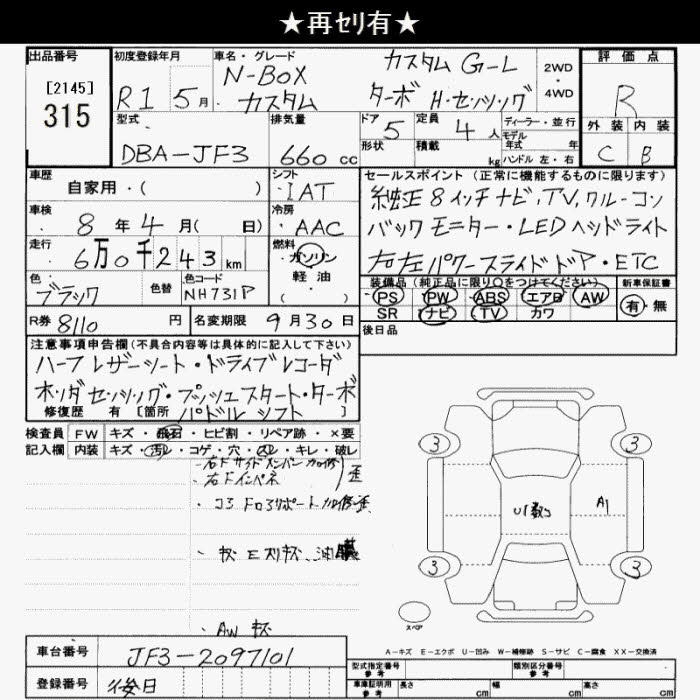 ★再ｾﾘ有★
出品番号 初度登録年月 車名・グレード 評価点
[2145]
315
R1 5月
N-BOX カスタム G-L 2WD
カスタム ターボ H・センシング 4WD
R
型式 排気量 ドア 定員 ディーラー・並行 外装 内装
DBA-JF3 660cc 5 4人 モデル年式 年
形状 積載 kg ハンドル 左・右 C B
車歴 シフト セールスポイント(正常に機能するものに限ります)
自家用・( ) IAT 純正8インチナビ,TV,クルーコン
車検 冷房
8年4月( 日) AAC バックモニター・LEDヘッドライト
走行 燃料
6万0千243km ガソリン 右左パワースライドドア・ETC
軽油
色 色替 色コード 装備品(純正品に限り○をつけてください) 新車保証書
ブラック NH731P ・( ) PS PW ABS エアB AW 有・無
SR ナビ TV カワ
R券 8110円 名変期限 9月30日 後日品
注意事項申告欄(不具合内容等は具体的に記入して下さい)
ハーフレザーシート・ドライブレコーダ
ホンダセンシング・プッシュスタート・ターボ
修復歴 有 [箇所 パドルシフト ]
検査員 FW キズ・飛石・ヒビ割・リペア跡・×要
記入欄 内装 キズ・汚レ・コゲ・穴・スレ・キレ・破レ
・右Fサイドメンバー
・右Fインパネ
③ ③
U1 A1
③ ③
・AW キズ
スペア
A-キズ E-エクボ U-凹み W-補修跡 S-サビ C-腐食 XX-交換済
車台番号 JF3-2097101
登録番号 後日
型式指定番号 参考 類別区分番号 参考
車庫証明用 参考 長さ cm 幅 cm 高さ cm